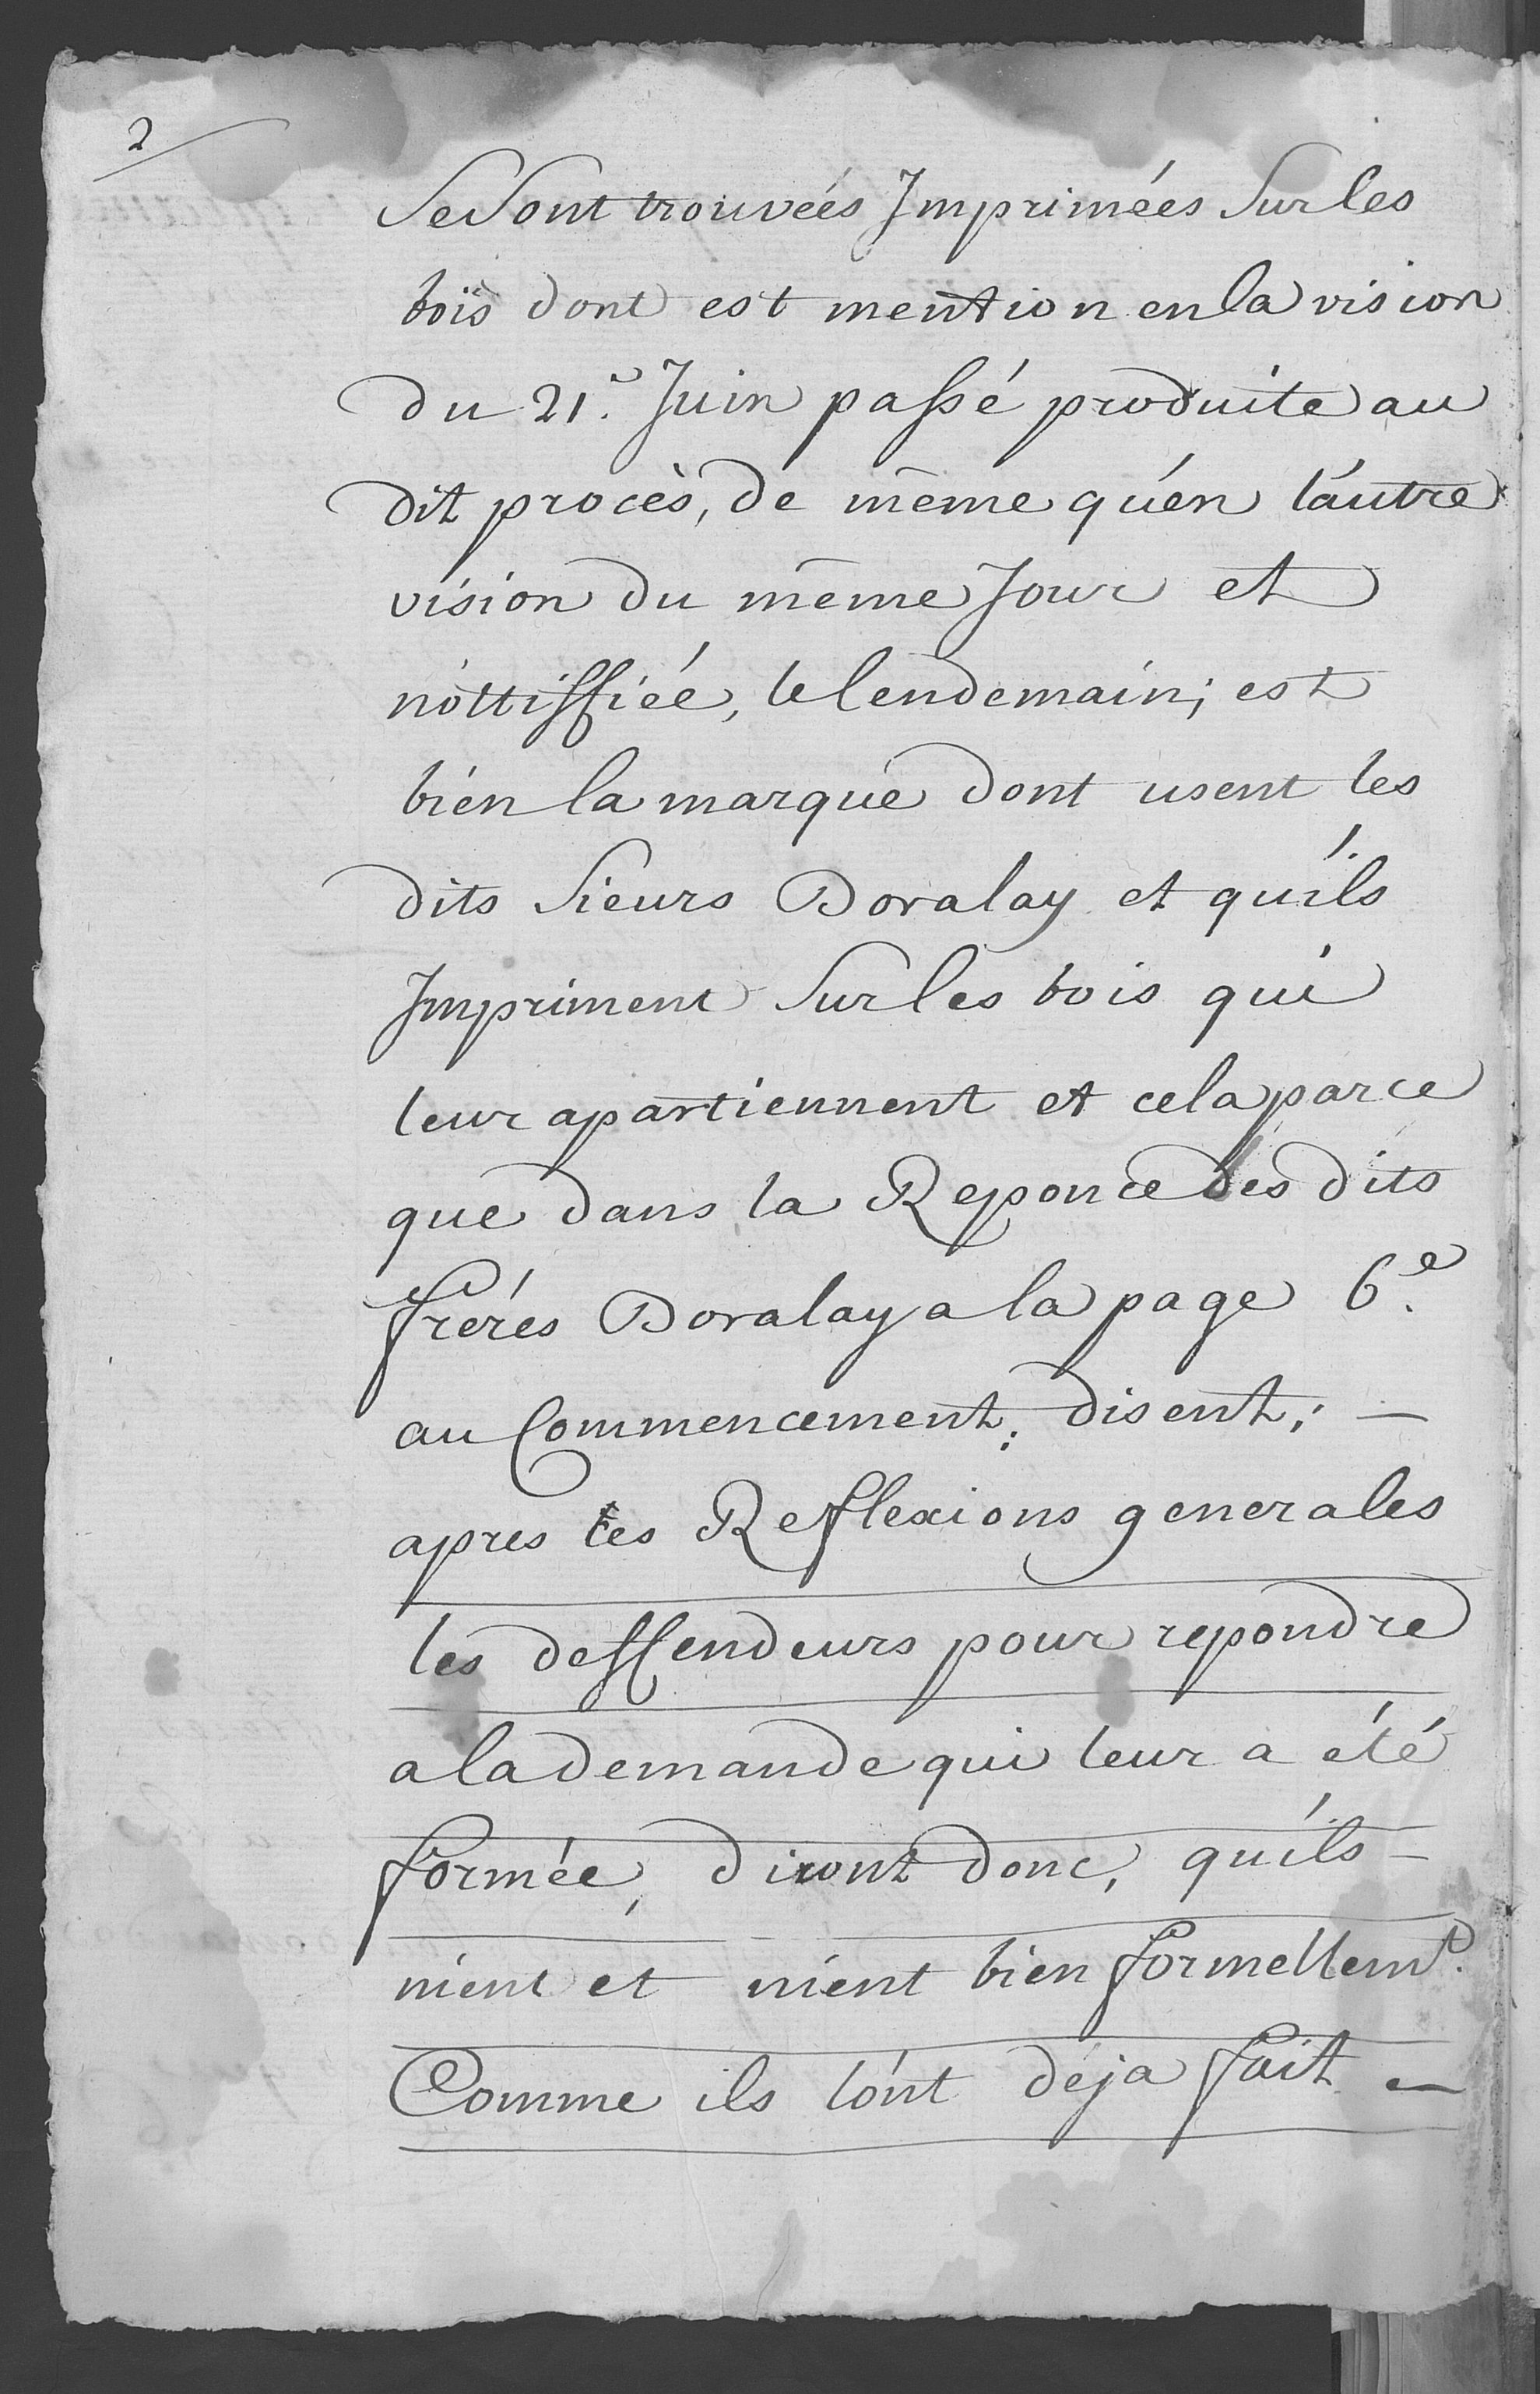 2
Se Sont trouvéés Jmpriméés Sur les
bois dont est mention en la vision
du 21.e Juin passé produite au
dit procès, de même qu'én l'áutre
vision du même Jour et
nóttiffiéé, le lendemain; est
bién la marque dont usent les
dits Sieurs Doralay et qu'ils
Jmpriment Sur les bois qui
leur apartiennent et cela parce
que dans la Reponce des dits
frérés Doralay a la page 6.e
au Commencement; disent; —
apres ces Reflexions generales
les deffendeurs pour repondre
a la demande qui leur a été
formée, diront donc, qu'ils —
nient et nient bien formellemt.
Comme ils l'ónt déja fait —